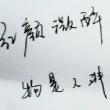 红颜微醉
物是人非